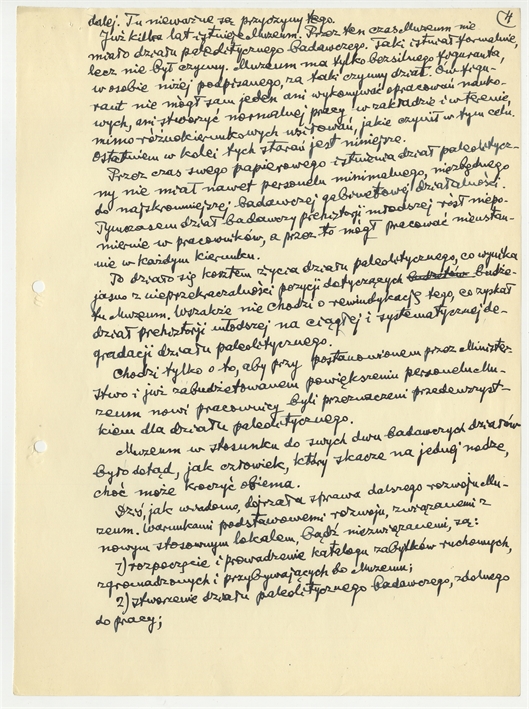 4
dalej. Tu nieważne są przyczyny tego.
Już kilka lat istnieje Muzeum. Przez ten czas Muzeum nie
miało działu paleolitycznego badawczego. Taki istniał formalnie,
lecz nie był czynny. Muzeum ma tylko bezsilnego figuranta,
w osobie niżej podpisanego, za taki czynny dział. Ów figu-
rant nie mógł sam jeden ani wykonywać opracowań nauko-
wych, ani stworzyć normalnej pracy w zakładzie i w terenie,
mimo różnokierunkowych usiłowań, jakie czynił w tym celu.
Ostatniem w kolei tych starań jest niniejsze.
Przez czas swego papierowego istnienia dział paleolitycz-
ny nie miał nawet personelu minimalnego, niezbędnego
do najskromniejszej badawczej gabinetowej działalności.
Tymczasem dział badawczy prehistorji młodszej rósł niepo-
miernie w pracowników, a przez to mógł pracować nieustan-
nie w każdym kierunku.
To działo się kosztem życia działu paleolitycznego, co wynika
jasno z nieprzekraczalności pozycji dotyczących budże-
tu Muzeum. Wszakże nie chodzi o rewindykację tego, co zyskał
dział prehistorji młodszej na ciągłej i systematycznej de-
gradacji działu paleolitycznego.
Chodzi tylko o to, aby przy postanowionem przez Minister-
stwo i już zabudżetowanem powiększeniu personelu Mu-
zeum nowi pracownicy byli przeznaczeni przedewszyst-
kiem dla działu paleolitycznego.
Muzeum w stosunku do swych dwu badawczych działów
było dotąd, jak człowiek, który skacze na jednej nodze,
choć może kroczyć obiema.
Dziś, jak wiadomo, dojrzała sprawa dalszego rozwoju Mu-
zeum. Warunkami podstawowemi rozwoju, związanemi z
nowym stosownym lokalem, bądź niezwiązanemi, są:
1) rozpoczęcie i prowadzenie katalogu zabytków ruchomych,
zgromadzonych i przybywających do Muzeum;
2) stworzenie działu paleolitycznego badawczego, zdolnego
do pracy;